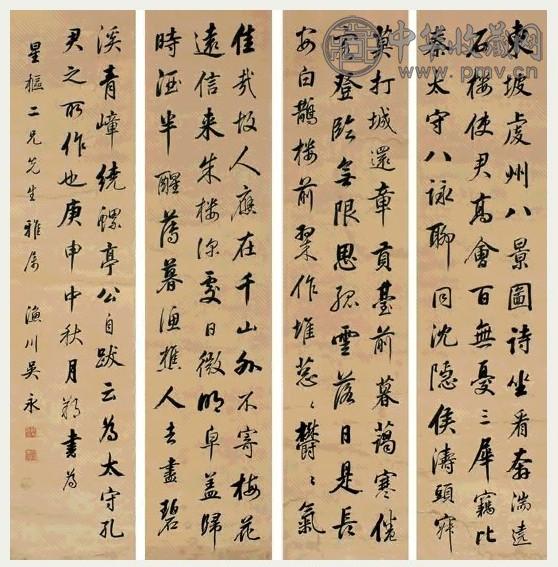 中华收藏网
www.pmv.cn
東坡虔州八景圖詩坐看奔湍遶
石樓使君高會百無憂三犀竊比
秦太守八詠聊同沈隱侯濤頭寂
莫打城還章貢臺前暮靄寒倦
客登臨無限思孤雲落日是長
安白鵲樓前翠作堆葱〻鬱〻氣
佳哉故人應在千山外不寄梅花
遠信來朱樓深處日微明皁蓋歸
時酒半醒薄暮漁樵人去盡碧
溪青嶂繞螺亭公自跋云為太守孔
君之所作也庚申中秋月書為
星樞二兄先生雅屬 漁川吳永